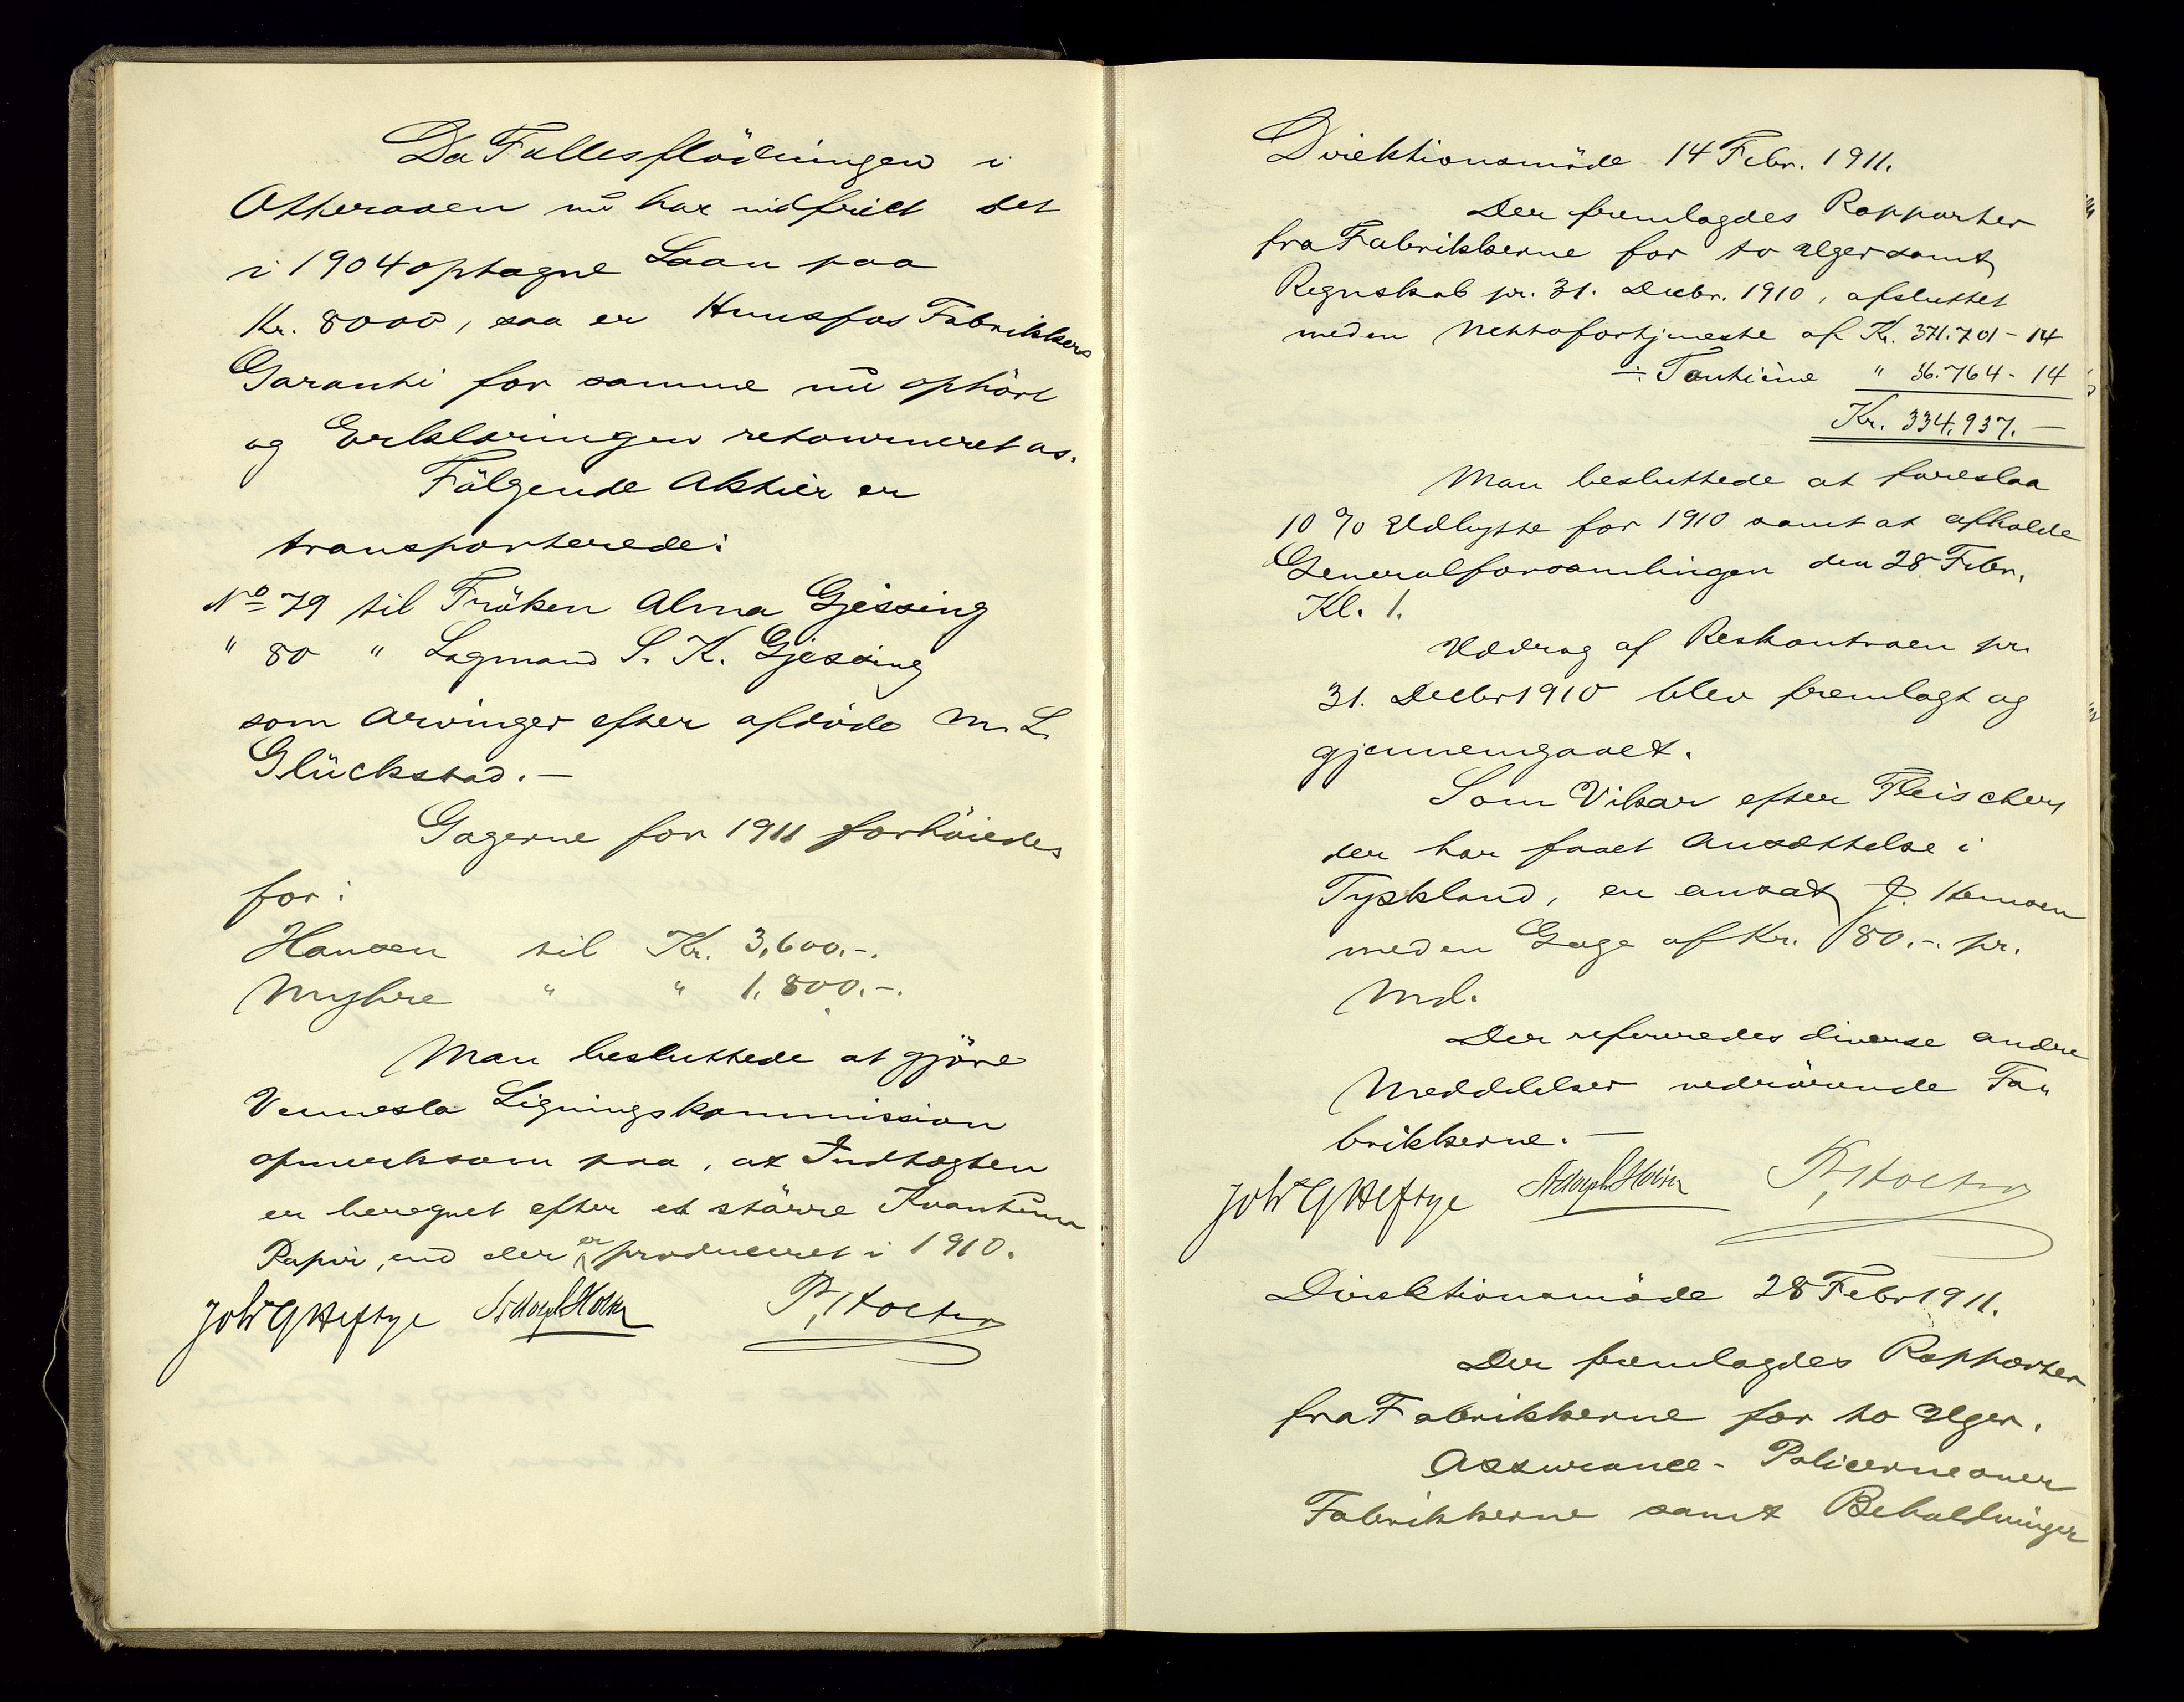 Da Fællesflödningen i
Otteraaen nu har indfriet det
i 1904 optagne Laan paa
Kr. 8000, saa er Hunsfos Fabrikkers
Garanti for samme nu ophört
og Erklæringen retourneret os.
Fölgende Aktier er
transporterede:
No 79 til Fröken Alma Gjessing
" 80 " Lagmand S. K. Gjessing
som Arvinger efter afdöde M. L.
Glückstad. —
Gagerne for 1911 forhöiedes
for:
Hansen til Kr. 3,600.-.
Myhre " " 1.800.-.
Man besluttede at gjöre
Vennesla Ligningskommission
opmerksom paa, at Indtægten
er beregnet efter et större Kvantum
Papir, end der er produceret i 1910.
Joh G Heftye Adolph Hoeg P. Stoltz
Direktionsmöde 14 Febr. 1911.
Der fremlagdes Rapporter
fra Fabrikkerne for to Uger samt
Regnskab pr. 31. Decbr. 1910, afsluttet
med en Nettofortjeneste af Kr. 371.701-14
÷ Tantième " 36.764-14
Kr. 334.937. —
Man besluttede at foreslaa
10 % Udbytte for 1910 samt at afholde
Generalforsamlingen den 28 Febr.
Kl. 1.
Uddrag af Reskontroen pr.
31. Decbr 1910 blev fremlagt og
gjennemgaaet.
Som Vikar efter Fleischer,
der har faaet Ansættelse i
Tyskland, er ansat J.
med en Gage af Kr. 180.-. pr.
Md.
Der refereredes diverse andre
Meddelelser vedrörende Fa„
brikkerne. —
Joh G Heftye Adolph Hoeg P. Stoltz
Direktionsmöde 28 Febr 1911.
Der fremlagdes Rapporter
fra Fabrikkerne for to Uger.
Assurance-Policerne over
Fabrikkerne samt Beholdninger